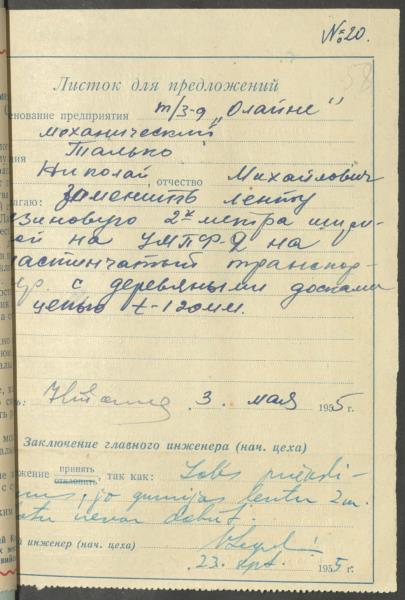 №20.
58
Листок для предложений
енование предприятия т/з-д „Олайне"
механический
Талько
Николай, отчество Михайлович
агаю: Заменить ленту
зиновую 2х метра шири-
ой на УМПФ-2 на
астинчатый транспор-
ер. с деревяными досками
цепью t-120мм.
3. мая 1955 г.
Заключение главного инженера (нач. цеха)
жение принять
отклонить, так как: Labs priekšli-
kums, jo gumijas lentu 2m.
platu nevar dabūt.
инженер (нач. цеха)
23. 1955 г.